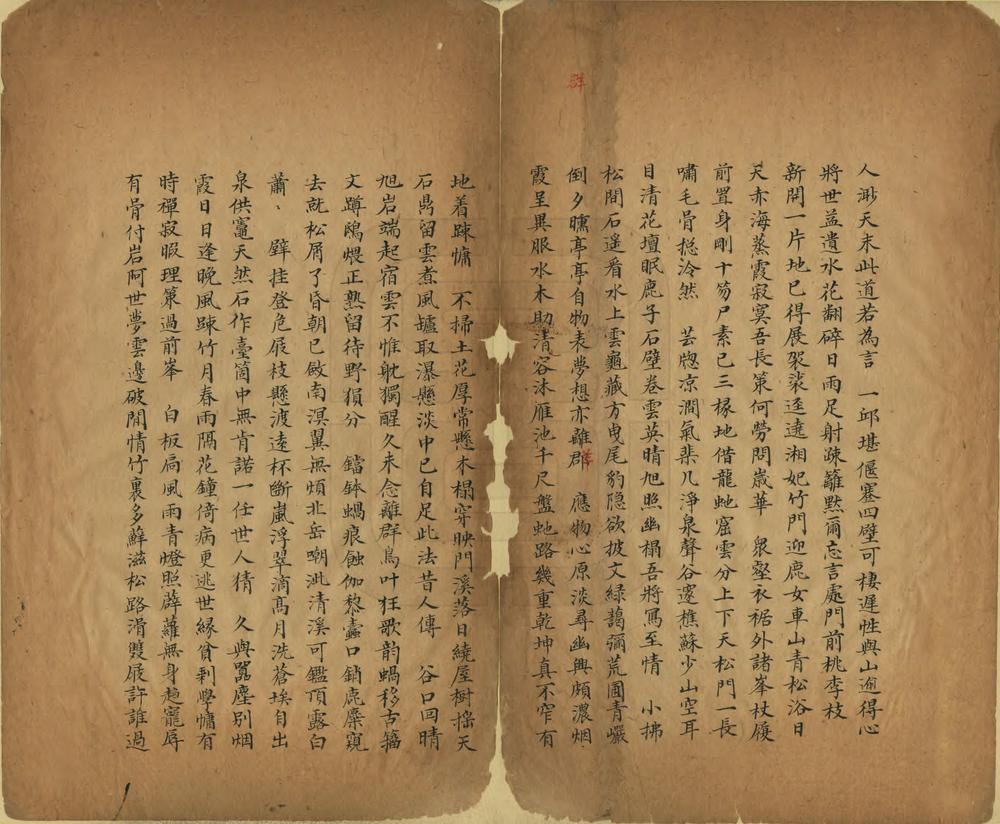 群
人渺天未此道若為言　一邱堪偃蹇四壁可棲遲性與山逾得心
將世益遺水花翻碎日雨足射疎籬默爾忘言處門前桃李枝
新開一片地已得展袈裟逶遶湘妃竹門迎鹿女車山青松浴日
天赤海蒸霞寂寞吾長策何勞問歲華　衆壑衣裾外諸峯杖履
前置身剛十笏尸素已三椽地借龍虵窟雲分上下天松門一長
嘯毛骨捴泠然　芸牕凉澗氣棐几淨泉聲谷邃樵蘇少山空耳
目清花壇眠鹿子石壁卷雲英晴旭照幽榻吾將寫至情　小拂
松間石遥看水上雲龜藏方曳尾豹隐欲披文綠藹彌荒圃青巘
倒夕曛亭亭自物表夢想亦離群　應物心原淡尋幽興頗濃烟
霞呈異服水木助清容沐雁池千尺盤虵路幾重乾坤真不窄有
地着踈慵　不掃土花厚常懸木榻穿映門溪落日繞屋樹揺天
石鼎留雲煮風罏取瀑懸淡中已自足此法昔人傳　谷口回晴
旭岩端起宿雲不惟躭獨醒久未念離群鳥叶狂歌韵蝸移古籀
文蹲鴟煨正熟留待野猨分　鐺鉢蝸痕蝕伽黎蠹口銷鹿麋窺
去就松屑了昏朝已斂南溟翼無煩北岳嘲泚清溪可鑑頂露白
蕭丶　躃挂登危屐枝懸渡遠杯斷嵐浮翠滴髙月洗蒼埃自出
泉供竈天然石作臺箇中無肯諾一任世人猜　久與嚣塵别烟
霞日日逢晚風踈竹月春雨隔花鐘倚病更逃世緣貧剩學慵有
時禪寂暇理策過前峯　白板扃風雨青燈照薜蘿無身趁寵辱
有骨付岩阿世夢雲邊破閒情竹裏多蘚滋松路滑雙屐許誰過